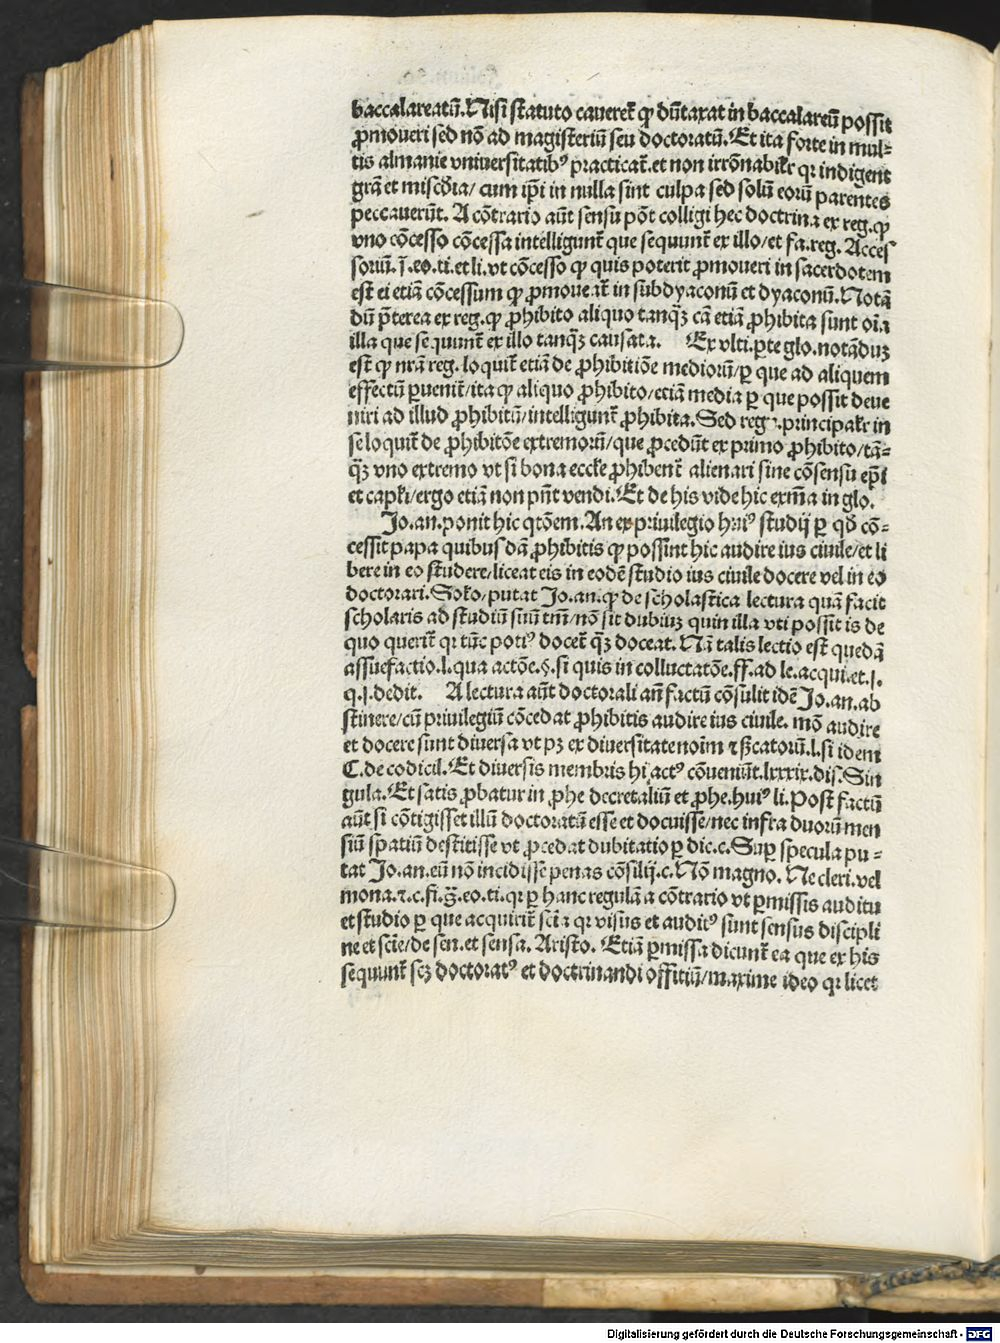 baccalareatū. Nisi statuto caueret̄ ꝙ dūtaxat in baccalareū possit
ꝓmoueri sed nō ad magisteriū seu doctoratū. Et ita forte in mul⸗
tis almanie vniuersitatibꝰ practicat̄. et non irrōnabilr̄ qꝛ indigent
grā et misc̄dia/ cum ip̄i in nulla sint culpa sed solū eorū parentes
peccauerūt. A cōtrario aūt sensu pōt colligi hec doctrina ex reg. ꝙ
vno cōcesso cōcessa intelligunt̄ que sequunt̄ ex illo/et fa. reg. Acces
soriū. j̄. eo. ti. et li. vt cōcesso ꝙ quis poterit ꝓmoueri in sacerdotem
est ei etiā cōcessum ꝙ ꝓmoueat̄ in subdyaconū et dyaconū. Notā
dū p̄terea ex reg. ꝙ ꝓhibito aliquo tanq̄ꝫ cā etiā ꝓhibita sunt oīa
illa que sequunt̄ ex illo tanq̄ꝫ causata. Ex vlti. ꝑte glo. notāduꝫ
est ꝙ nrā reg. loquit̄ etiā de ꝓhibitiōe mediorū/ꝑ que ad aliquem
effectū ꝑuenit̄/ita ꝙ aliquo ꝓhibito/etiā media ꝑ que possit deue
niri ad illud ꝓhibitū/intelligunt̄ ꝓhibita. Sed reg. principalr̄ in
se loquit̄ de ꝓhibitōe extremorū/que ꝓcedūt ex primo ꝓhibito/tā⸗
q̄ꝫ vno extremo vt si bona eccl̄e ꝓhibent̄ alienari sine cōsensu ep̄i
et capl̄i/ergo etiā non pn̄t vendi. Et de his vide hic exm̄a in glo.
Jo. an. ponit hic q̄tōem. An ex priuilegio huiꝰ studij ꝑ qd̄ cō⸗
cessit papa quibusdā ꝓhibitis ꝙ possint hic audire ius ciuile/et li
bere in eo studere/liceat eis in eodē studio ius ciuile docere vel in eo
doctorari. Solo/putat Jo. an. ꝙ de scholastica lectura quā facit
scholaris ad studiū suū tm̄/nō sit dubiuꝫ quin illa vti possit is de
quo querit̄ qꝛ tūc potiꝰ docet̄ q̄ꝫ doceat. Nā talis lectio est quedā
assuefactio. l. qua actōe. §. si quis in colluctatōe. ff. ad le. acqui. et. j.
q. j. dedit. A lectura aūt doctorali an̄ factū cōsulit idē Jo. an. ab
stinere/cū priuilegiū cōcedat ꝓhibitis audire ius ciuile. mō audire
et docere sunt diuersa vt pꝫ ex diuersitate noīm ⁊ s̄catorū. l. si idem
C. de codicil. Et diuersis membris hi actꝰ cōueniūt. lxxxix. dis. Sin
gula. Et satis ꝓbatur in ꝓhe decretaliū et ꝓhe. huiꝰ li. Post factū
aūt si cōtigisset illū doctoratū esse et docuisse/nec infra duorū men
siū spatiū destitisse vt ꝓcedat dubitatio ꝑ dic. c. Suꝑ specula pu⸗
tat Jo. an. eū nō incidisse penas cōsilij. c. Nō magno. Ne cleri. vel
mona. ⁊. c. fi. s̄. eo. ti. qꝛ ꝑ hanc regulā a cōtrario vt ꝑmissis auditu
et studio ꝑ que acquirit̄ scīa qꝛ visus et auditꝰ sunt sensus discipli
ne et scīe/de sen. et sensa. Aristo. Etiā ꝑmissa dicunt̄ ea que ex his
sequunt̄ scꝫ doctoratꝰ et doctrinandi offitiū/maxime ideo qꝛ licet
Digitalisierung gefördert durch die Deutsche Forschungsgemeinschaft - DFG